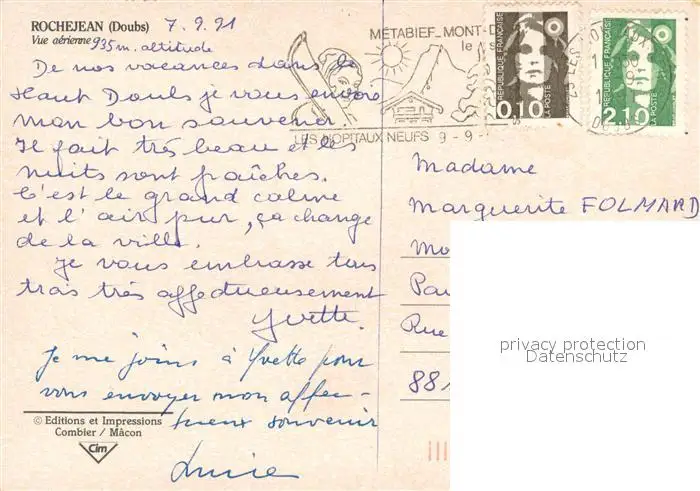 ROCHEJEAN (Doubs) 7.9.91
Vue aérienne 935m. altitude
De nos vacances dans le
Haut Doubs je vous envoie
mon bon souvenir
Il fait très beau et les
nuits sont fraîches.
C'est le grand calme
et l'air pur, ça change
de la ville.
Je vous embrasse tous
trois très affectueusement
Yvette.
Je me joins à Yvette pour
vous envoyer mon affec-
tueux souvenir
© Editions et Impressions
Combier / Mâcon
Cim
MÉTABIEF MONT-D
le
LES HOPITAUX NEUFS 9-9-
REPUBLIQUE FRANÇAISE
0,10
LA POSTE
REPUBLIQUE FRANÇAISE
2,10
LA POSTE
Madame
Marguerite FOLMARD
Mo
Pau
Rue
881
privacy protection
Datenschutz